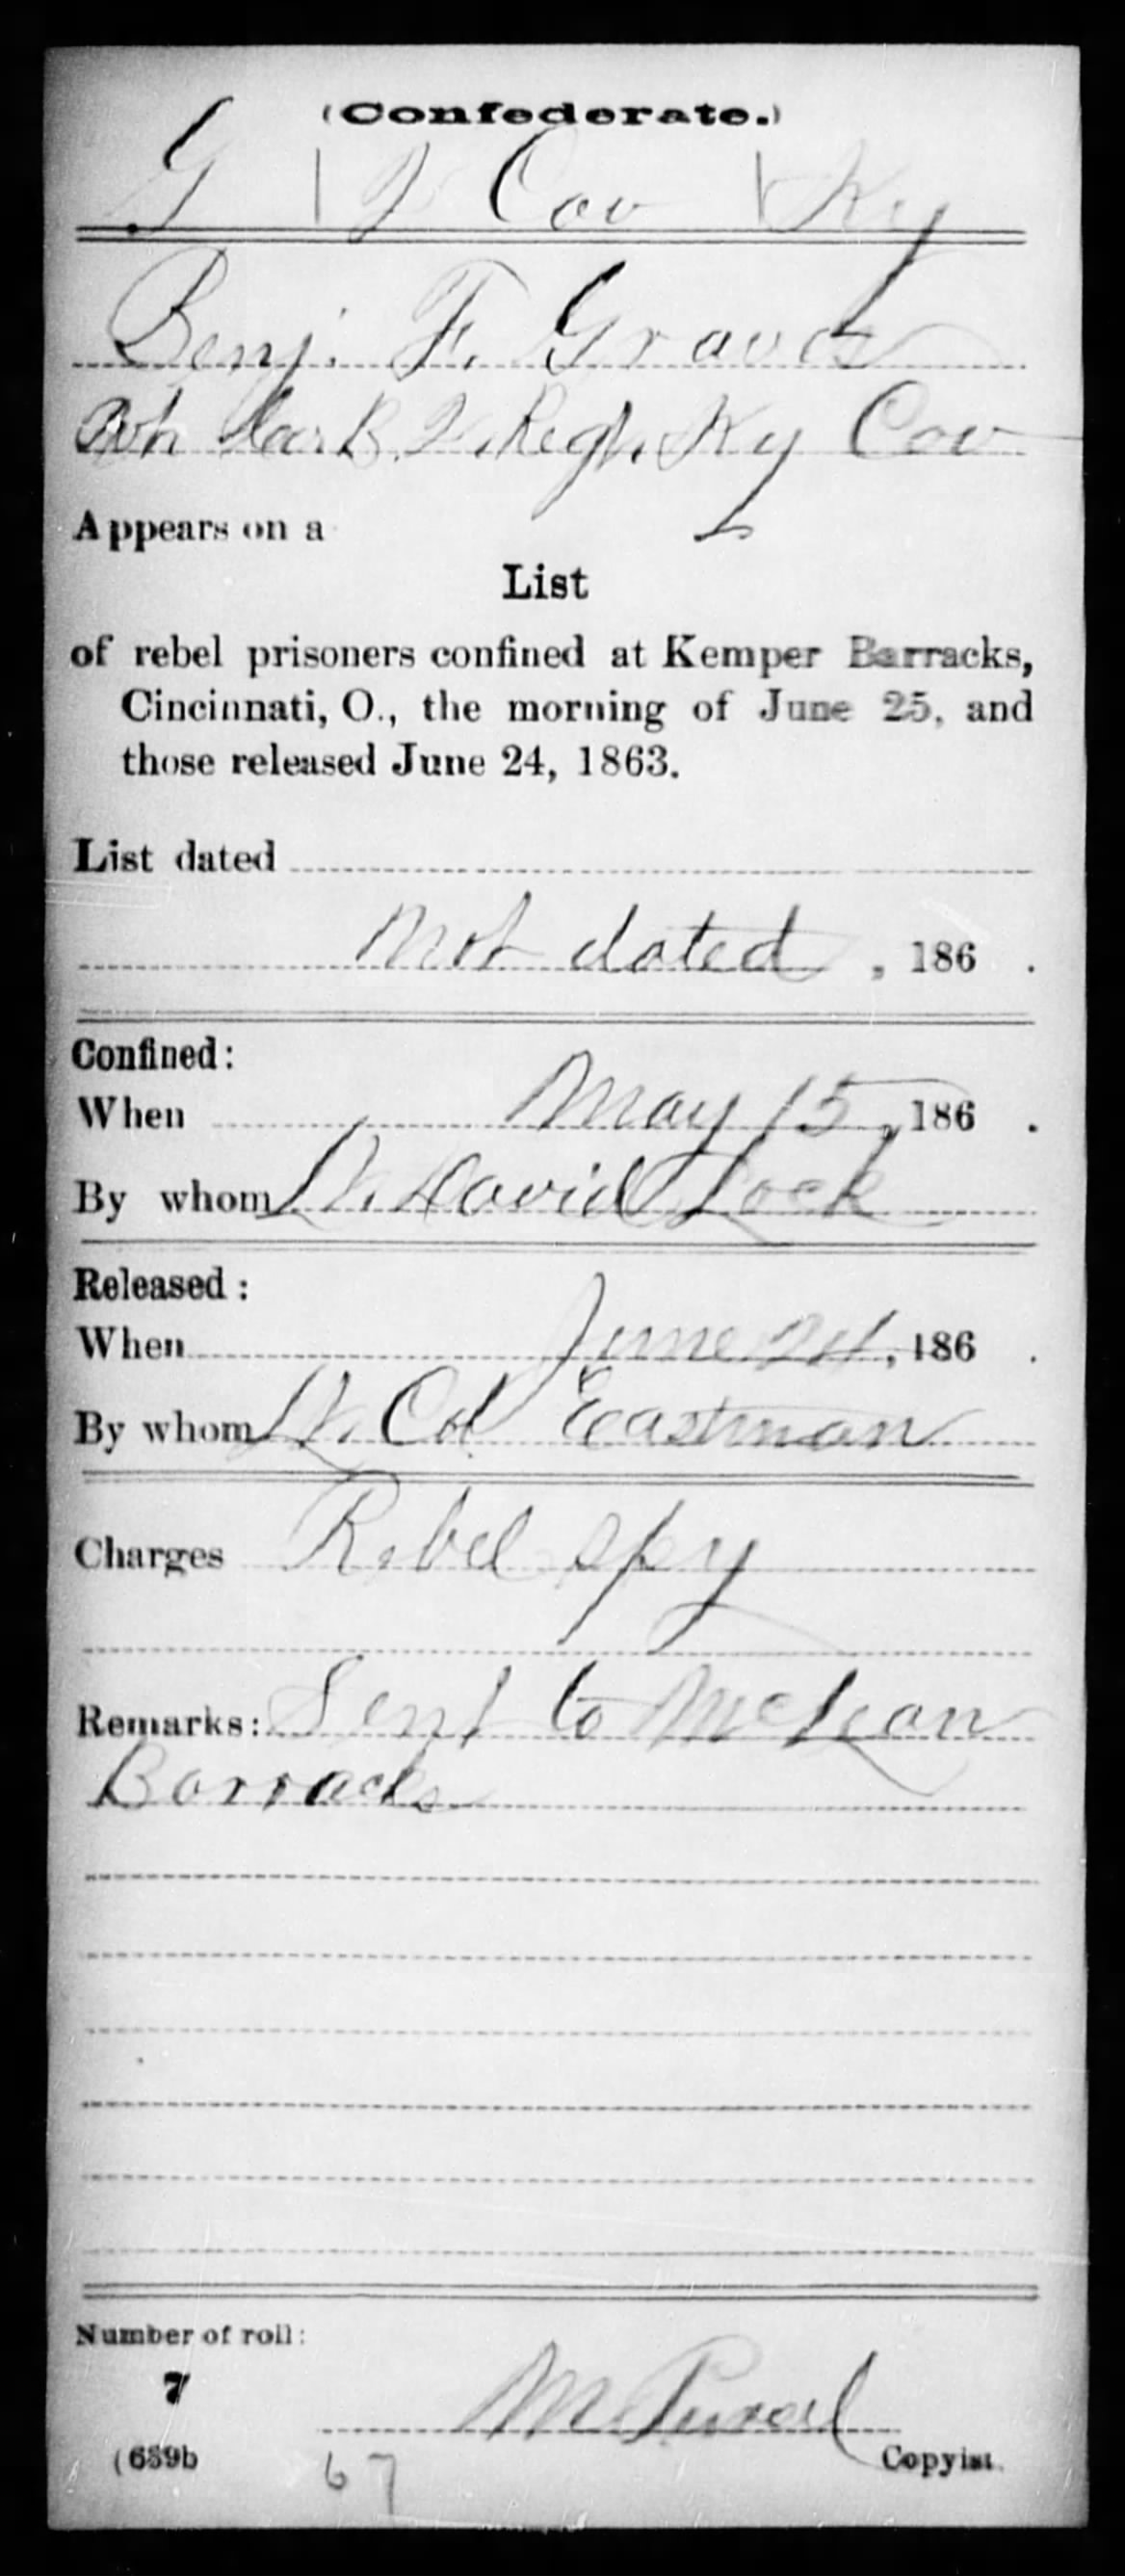 (Confederate.)
G | 2 Cav | Ky
Benj. F. Graves
Co. B. 2 Regt. Ky Cav
Appears on a
List
of rebel prisoners confined at Kemper Barracks,
Cincinnati, O., the morning of June 25, and
those released June 24, 1863.
List dated
Not dated, 186 .
Confined:
When May 15, 186 .
By whom Lt. David Lock
Released:
When June 24, 186 .
By whom Lt. Col Eastman
Charges Rebel spy
Remarks: Sent to McLean
Barracks
Number of roll:
7
M. Pursel
(639b 67 Copyist.